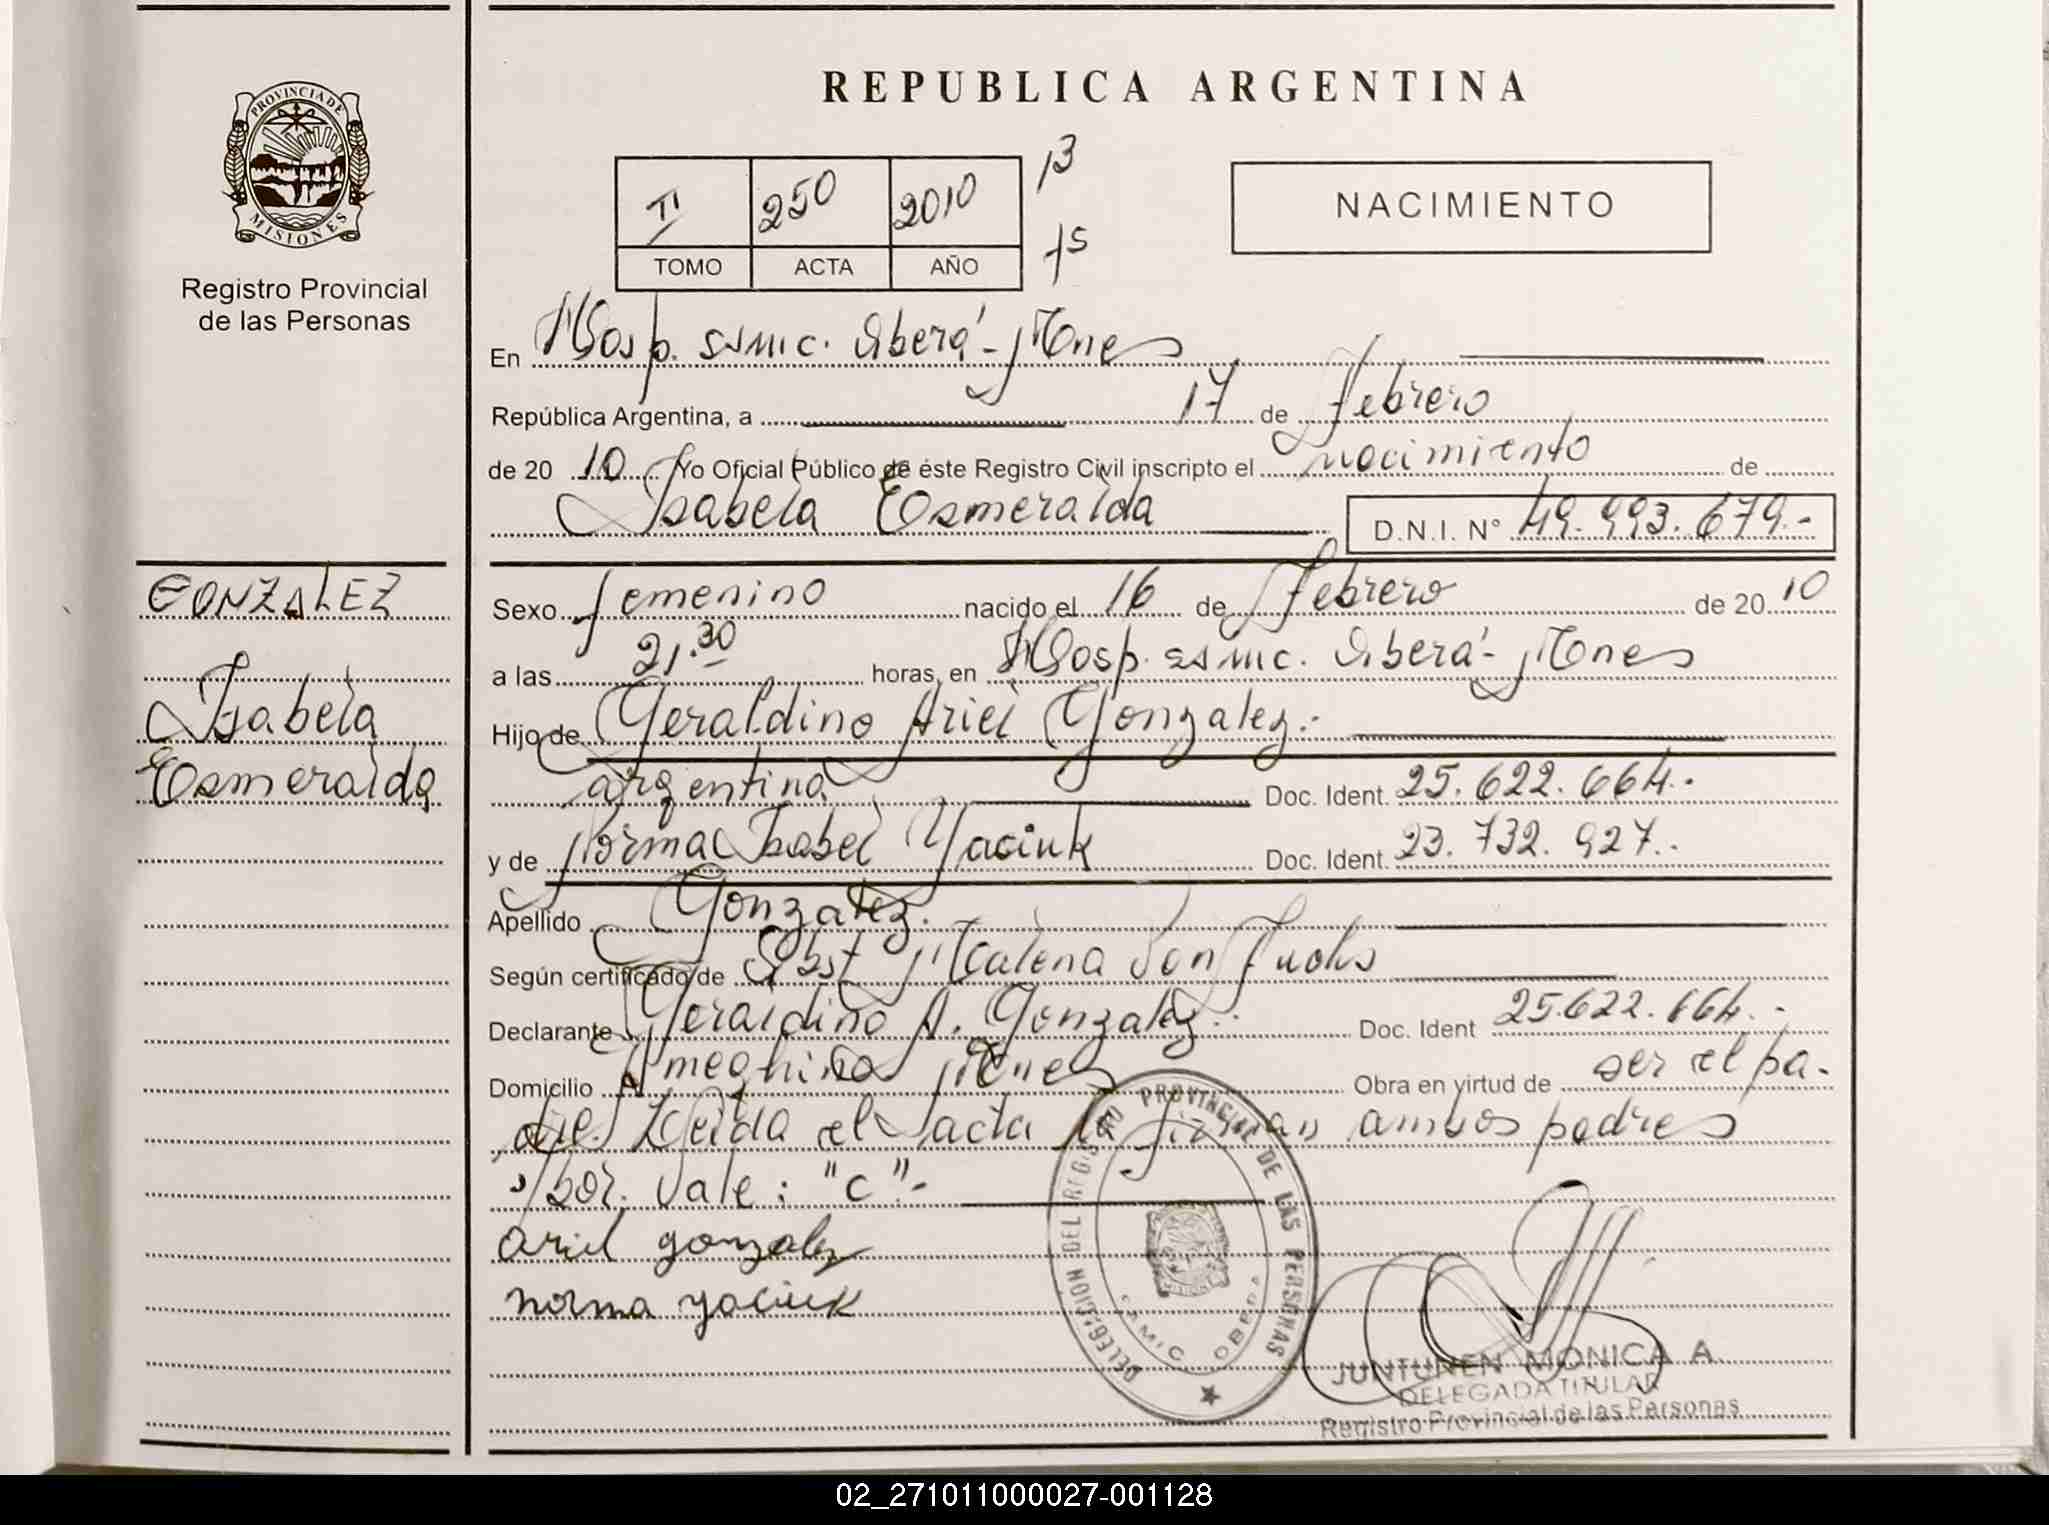 PROVINCIA DE
MISIONES
Registro Provincial
de las Personas
REPUBLICA ARGENTINA
II 250 2010
TOMO ACTA AÑO
13
15
NACIMIENTO
En Hosp. SAMIC. Oberá - Mnes
República Argentina, a 17 de Febrero
de 20 10 Yo Oficial Público de éste Registro Civil inscripto el nacimiento de
Isabela Esmeralda D.N.I. N° 49.993.679.-
GONZALEZ
Isabela
Esmeralda
Sexo femenino nacido el 16 de Febrero de 20 10
a las 21.30 horas, en Hosp. SAMIC. Oberá - Mnes
Hijo de Geraldino Ariel Gonzalez.-
argentina Doc. Ident. 25.622.664.-
y de Norma Isabel Yaciuk Doc. Ident. 23.732.927.-
Apellido Gonzalez.
Según certificado de Obst Malena Von Fuchs
Declarante Geraldino A. Gonzalez.- Doc. Ident 25.622.664.-
Domicilio Ameghino Mnes Obra en virtud de ser el pa-
dre. Leída el acta la firman ambos padres
Vale: "c".-
Ariel gonzalez
norma yaciuk
DELEGACION DEL REGISTRO PROVINCIAL DE LAS PERSONAS
SAMIC OBERA
JUNTUNEN MONICA A
DELEGADA TITULAR
Registro Provincial de las Personas
02_271011000027-001128